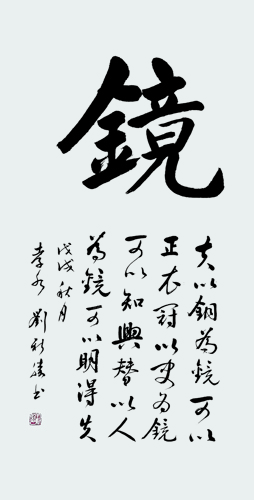 鏡
夫以銅為鏡可以
正衣冠以史為鏡
可以知興替以人
為鏡可以明得失
戊戌秋月
孝水劉新勝书